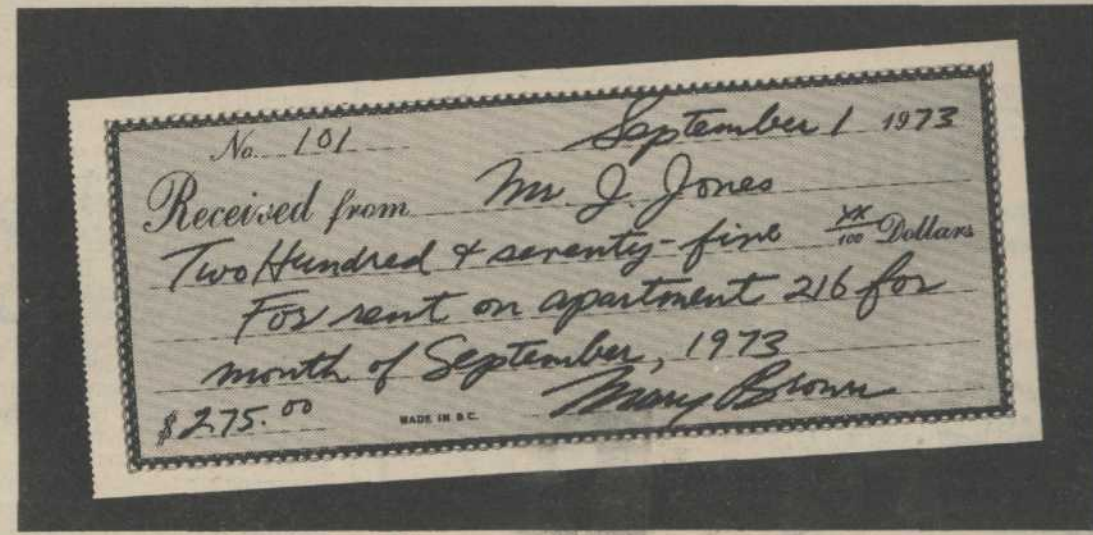 No. 101
September 1 1973
Received from Mr J. Jones
Two Hundred & seventy-five XX/100 Dollars
For rent on apartment 216 for
month of September, 1973
$275.00 MADE IN B.C. Mary Brown